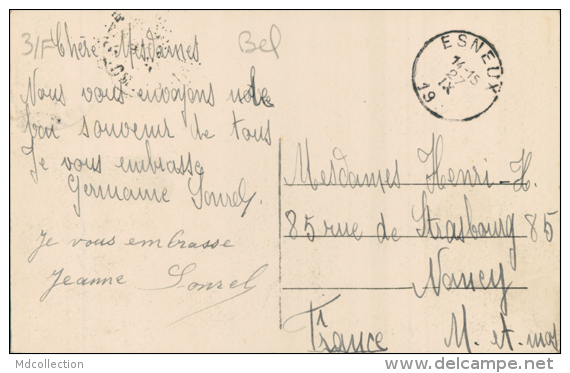 3/F
Bel
Chère Mesdames
Nous vous envoyons notre
bon souvenir de tous
Je vous embrasse
Germaine Sonrel,
Je vous embrasse
Jeanne Sonrel
ESNEUX
14-15
27
IX
19
Mesdames Henri-H.
85 rue de Strasbourg 85
Nancy
France M. et. mos
Mdcollection
www.delcampe.net